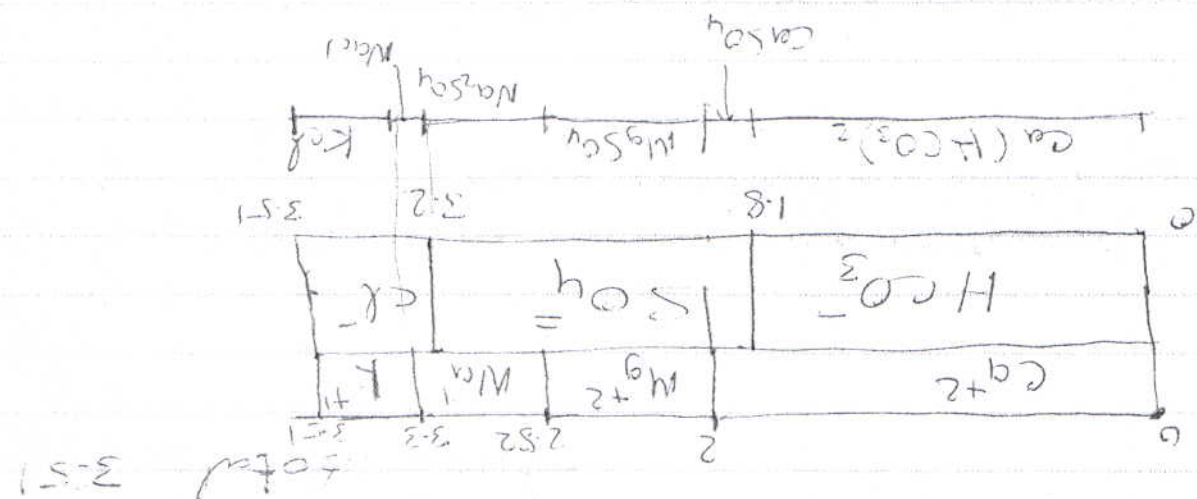 total 3.51
0 2 2.52 3.3 3.51
Ca+2 Mg+2 Na+1 K+1
HCO3- SO4= Cl-
0 1.8 3.2 3.51
Ca(HCO3)2 MgSO4 Na2SO4 KCl
CaSO4 NaCl